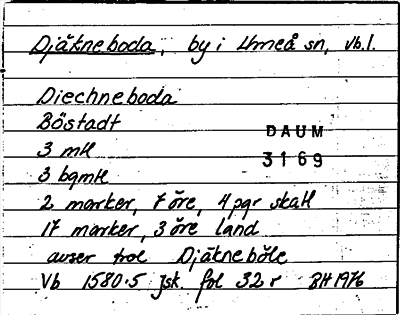 Djäkneboda, by i Umeå sn, Vb.l.
Diechneboda
Böstadt
DAUM
3 mtl
3169
3 bgmtl
2 marker, 7 öre, 4 pgr skatt
17 marker, 3 öre land
avser trol Djäkneböle
Vb 1580.5 Jsk. fol 32 r BH 1976